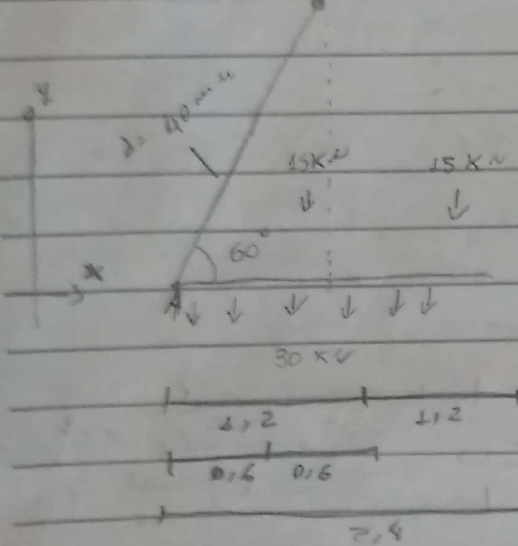 y
40 mm
15 KN 15 KN
60°
x
A
30 KN
1,2 1,2
0,6 0,6
2,4